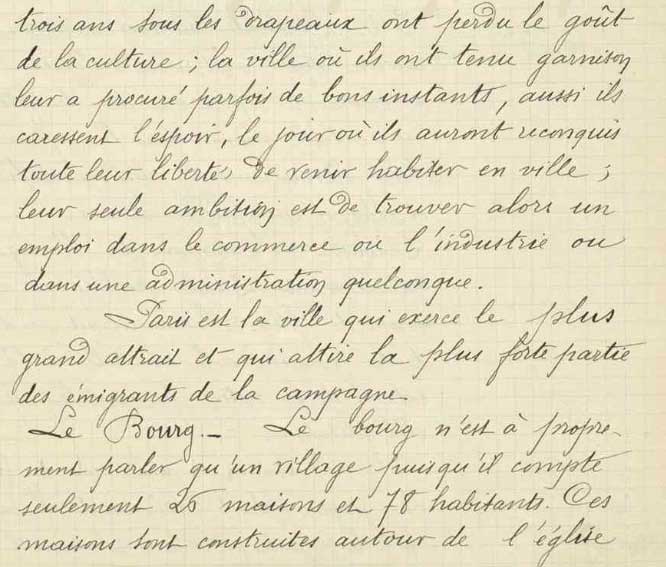 trois ans sous les drapeaux ont perdu le goût
de la culture ; la ville où ils ont tenu garnison
leur a procuré parfois de bons instants, aussi ils
caressent l'espoir, le jour où ils auront reconquis
toute leur liberté de venir habiter en ville ;
leur seule ambition est de trouver alors un
emploi dans le commerce ou l'industrie ou
dans une administration quelconque.
Paris est la ville qui exerce le plus
grand attrait et qui attire la plus forte partie
des émigrants de la campagne
Le Bourg. — Le bourg n'est à propre-
ment parler qu'un village puisqu'il compte
seulement 26 maisons et 78 habitants. Ces
maisons sont construites autour de l'église